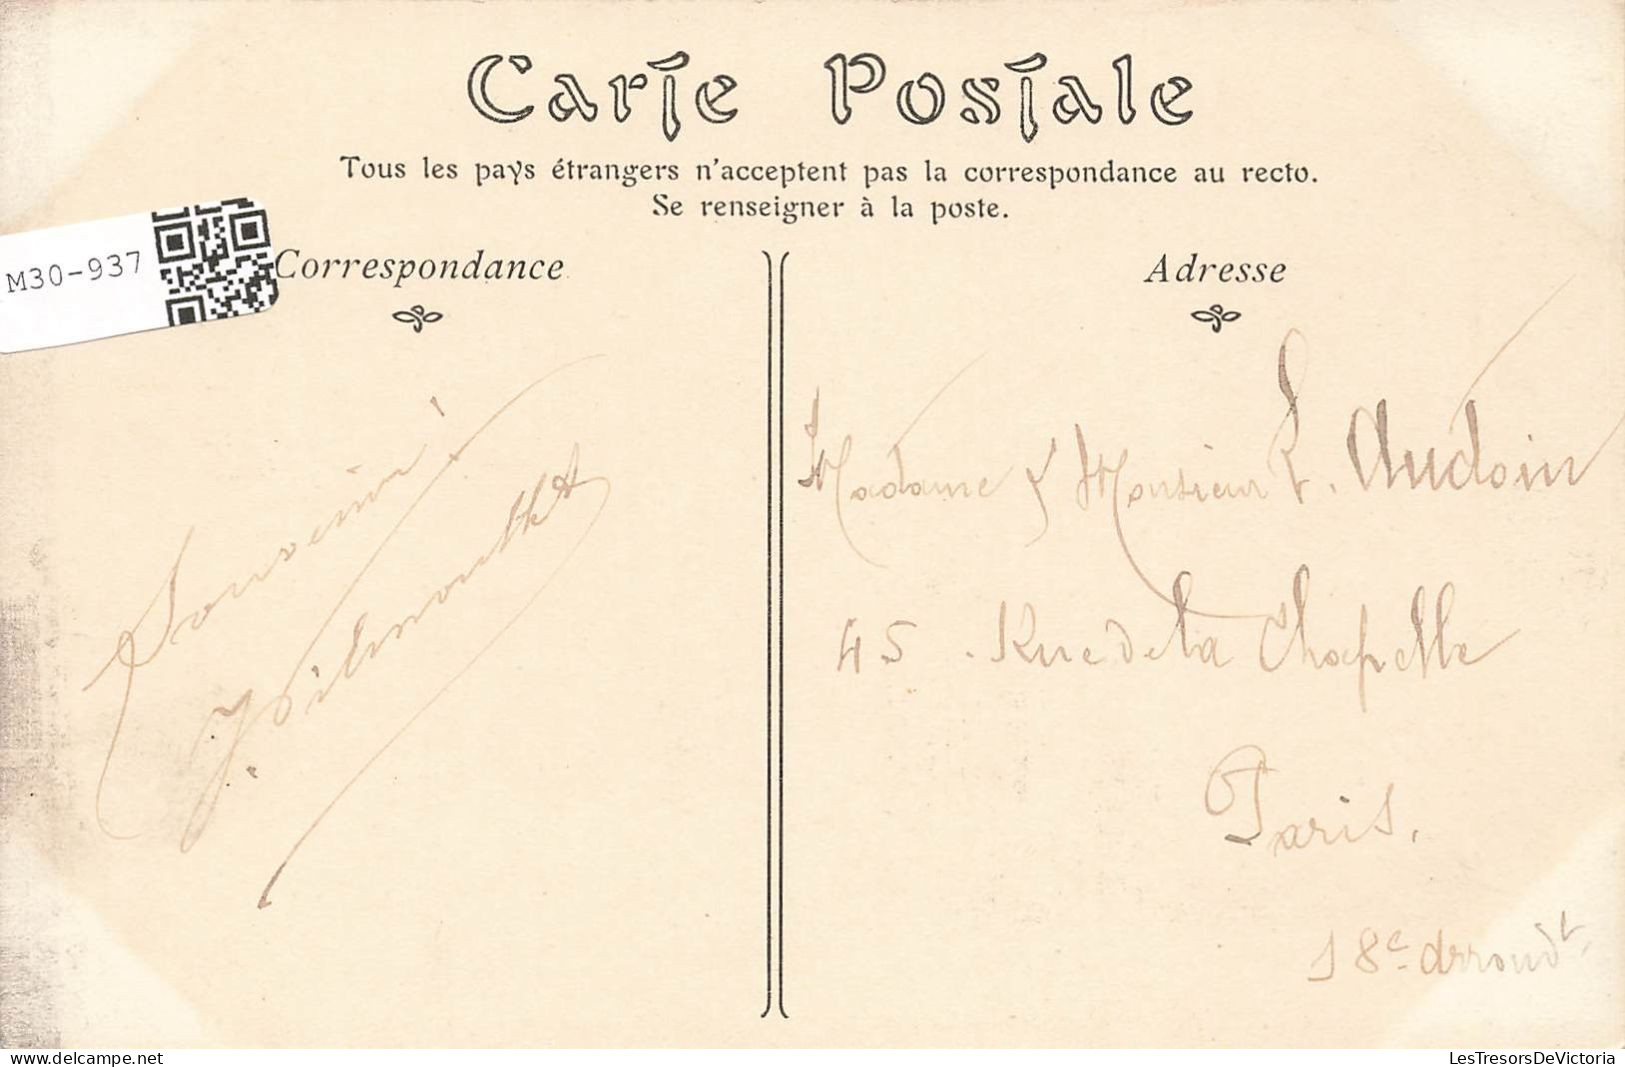 Carte Postale
Tous les pays étrangers n'acceptent pas la correspondance au recto.
Se renseigner à la poste.
M30-937
Correspondance
Adresse
Souvenir
Madame & Monsieur L. Audoin
45. Rue de la Chapelle
Paris.
18e arrondt
delcampe.net
LesTresorsDeVictoria